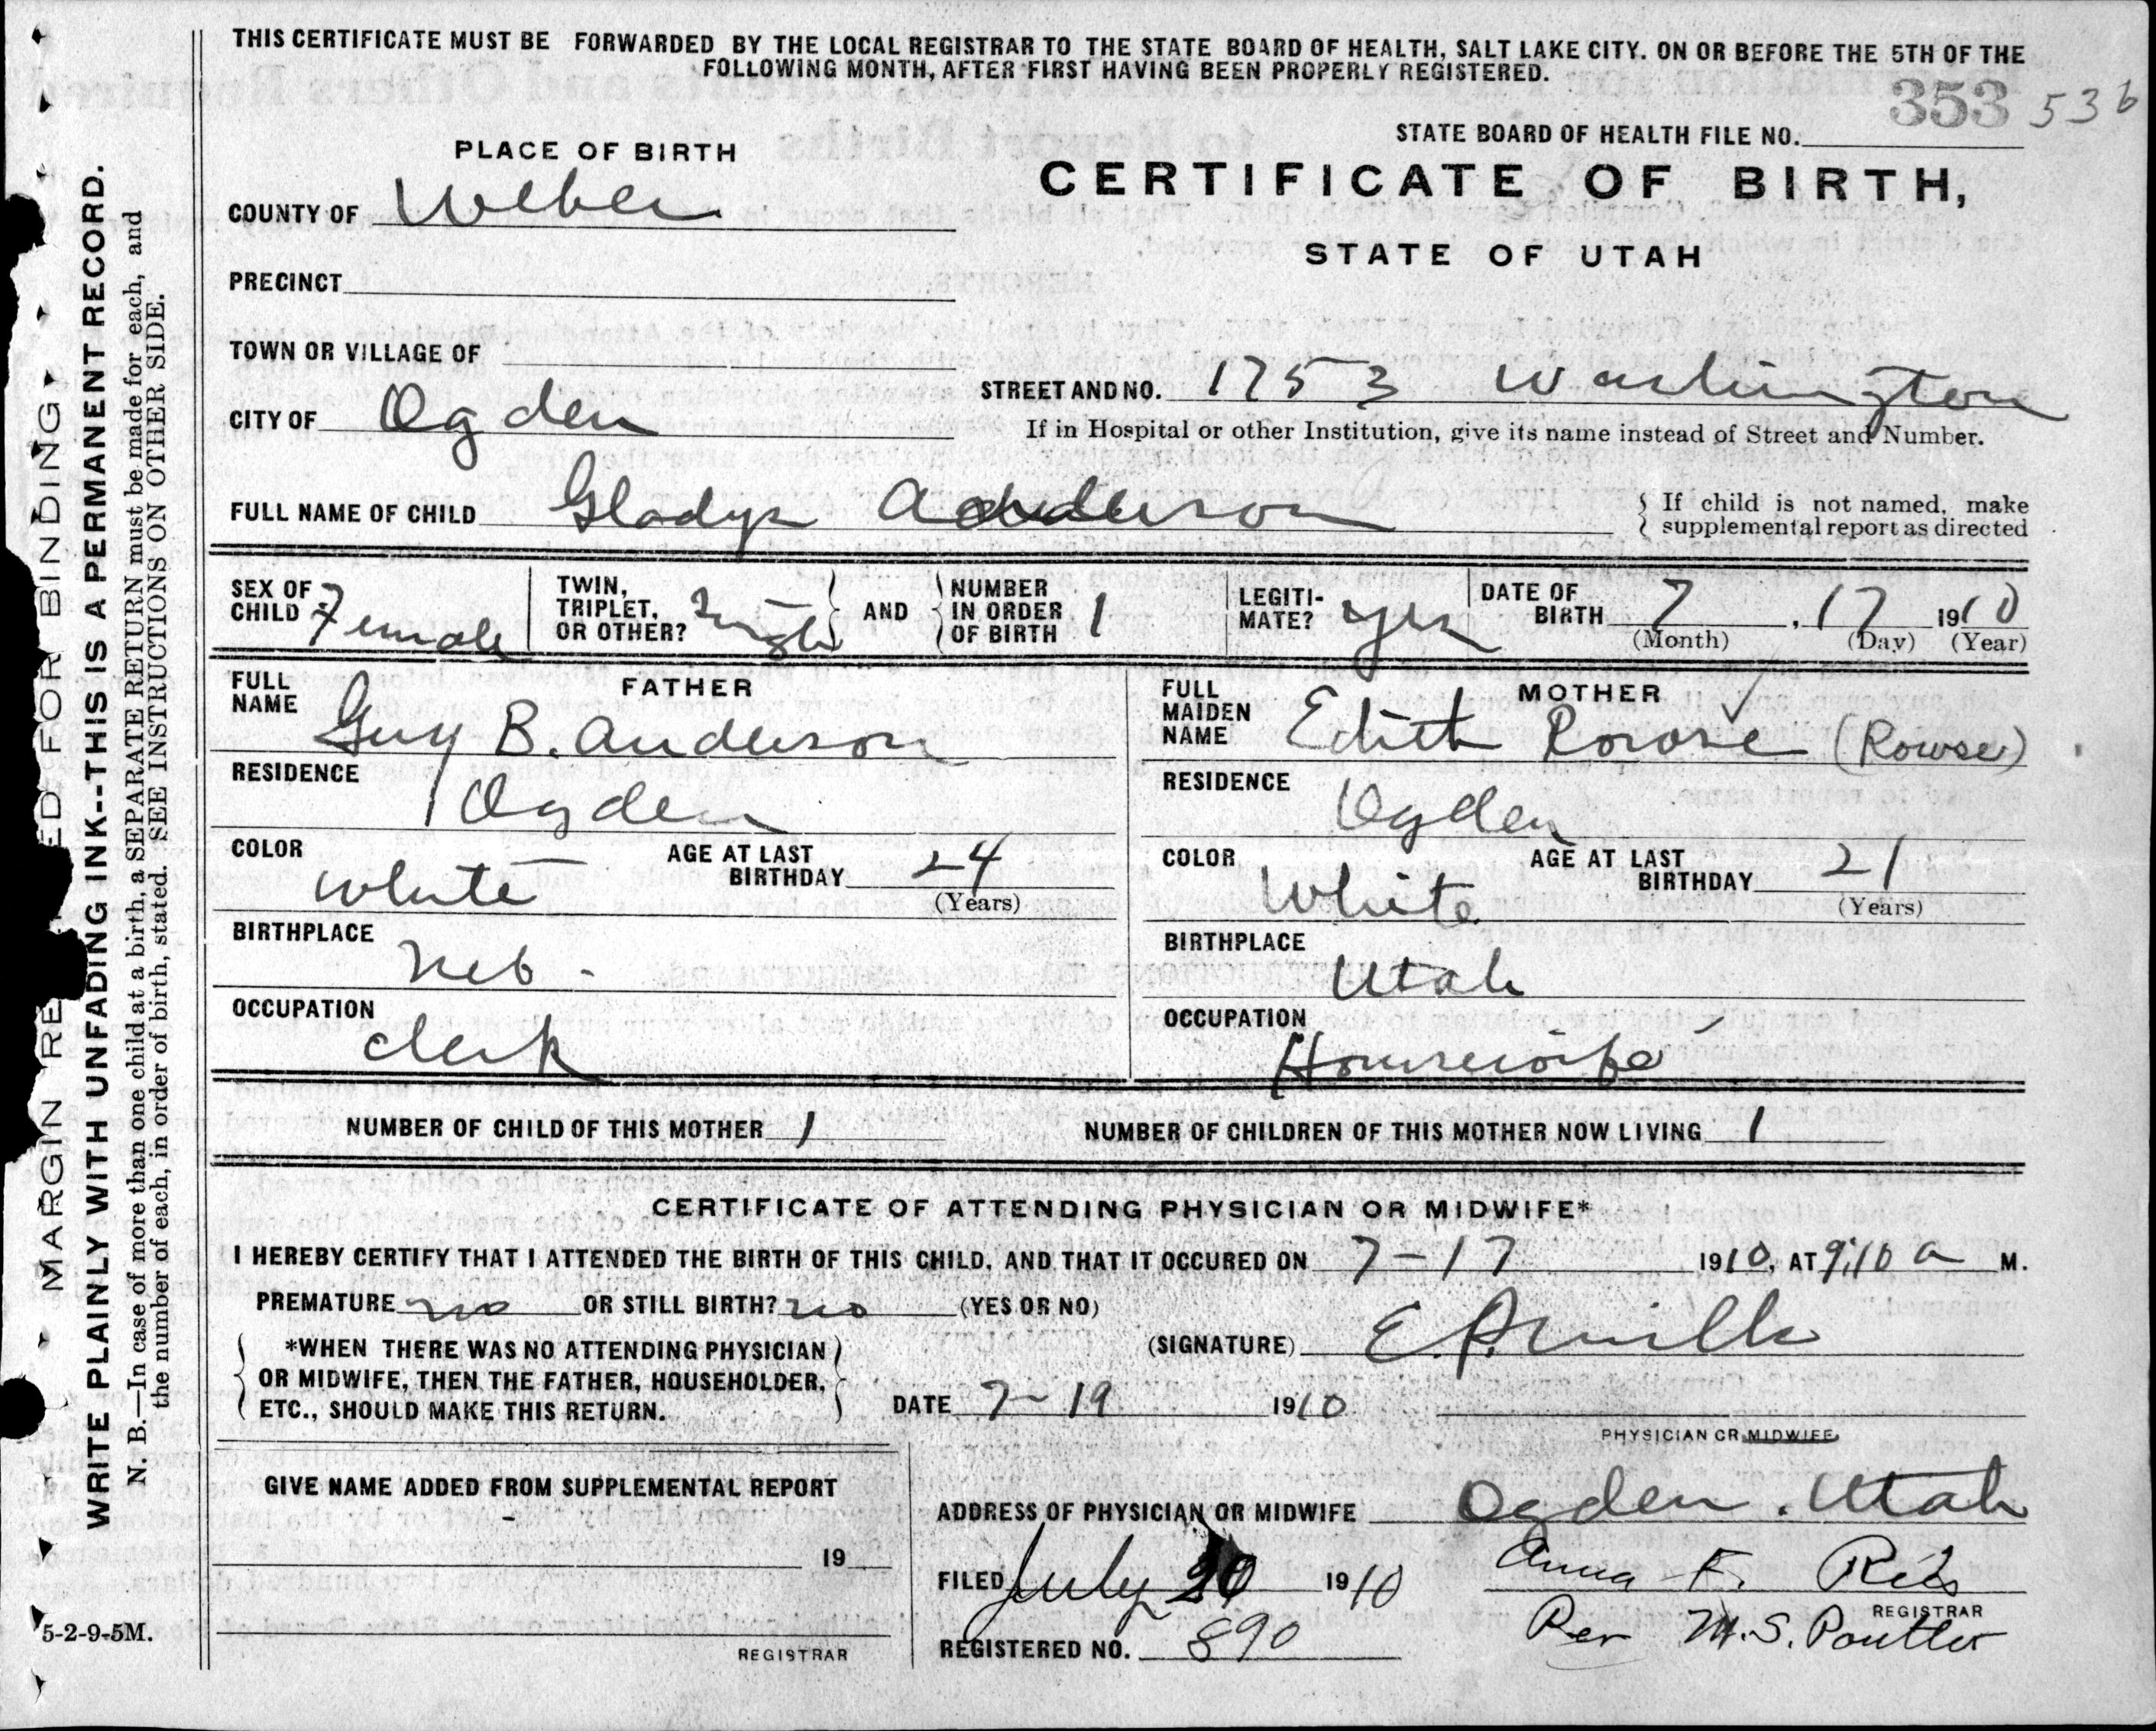 THIS CERTIFICATE MUST BE FORWARDED BY THE LOCAL REGISTRAR TO THE STATE BOARD OF HEALTH, SALT LAKE CITY. ON OR BEFORE THE 5TH OF THE
FOLLOWING MONTH, AFTER FIRST HAVING BEEN PROPERLY REGISTERED.
353 536
STATE BOARD OF HEALTH FILE NO.
PLACE OF BIRTH
CERTIFICATE OF BIRTH,
STATE OF UTAH
COUNTY OF Weber
PRECINCT
TOWN OR VILLAGE OF
CITY OF Ogden
STREET AND NO. 1753 Washington
If in Hospital or other Institution, give its name instead of Street and Number.
FULL NAME OF CHILD Gladys Anderson
If child is not named, make
supplemental report as directed
SEX OF CHILD Female
TWIN, TRIPLET, OR OTHER? Single
AND NUMBER IN ORDER OF BIRTH 1
LEGITI-MATE? yes
DATE OF BIRTH 7 , 17 1910
(Month) (Day) (Year)
FATHER
FULL NAME Guy B. Anderson
RESIDENCE Ogden
COLOR White
AGE AT LAST BIRTHDAY 24
(Years)
BIRTHPLACE Neb.
OCCUPATION Clerk
MOTHER
FULL MAIDEN NAME Edith Rowse (Rowse)
RESIDENCE Ogden
COLOR White
AGE AT LAST BIRTHDAY 21
(Years)
BIRTHPLACE Utah
OCCUPATION Housewife
NUMBER OF CHILD OF THIS MOTHER 1
NUMBER OF CHILDREN OF THIS MOTHER NOW LIVING 1
CERTIFICATE OF ATTENDING PHYSICIAN OR MIDWIFE*
I HEREBY CERTIFY THAT I ATTENDED THE BIRTH OF THIS CHILD, AND THAT IT OCCURED ON 7-17 1910, AT 9:10 a M.
PREMATURE no OR STILL BIRTH? no (YES OR NO)
*WHEN THERE WAS NO ATTENDING PHYSICIAN
OR MIDWIFE, THEN THE FATHER, HOUSEHOLDER,
ETC., SHOULD MAKE THIS RETURN.
(SIGNATURE) E. P. Mills
DATE 7-19 1910
PHYSICIAN OR MIDWIFE
GIVE NAME ADDED FROM SUPPLEMENTAL REPORT
19
REGISTRAR
ADDRESS OF PHYSICIAN OR MIDWIFE Ogden. Utah
FILED July 20 1910
Anna F.
REGISTRAR
Per M.S. Poulter
REGISTERED NO. 890
5-2-9-5M.
MARGIN RE ED FOR BINDING
WRITE PLAINLY WITH UNFADING INK--THIS IS A PERMANENT RECORD.
N. B.—In case of more than one child at a birth, a SEPARATE RETURN must be made for each, and
the number of each, in order of birth, stated. SEE INSTRUCTIONS ON OTHER SIDE.